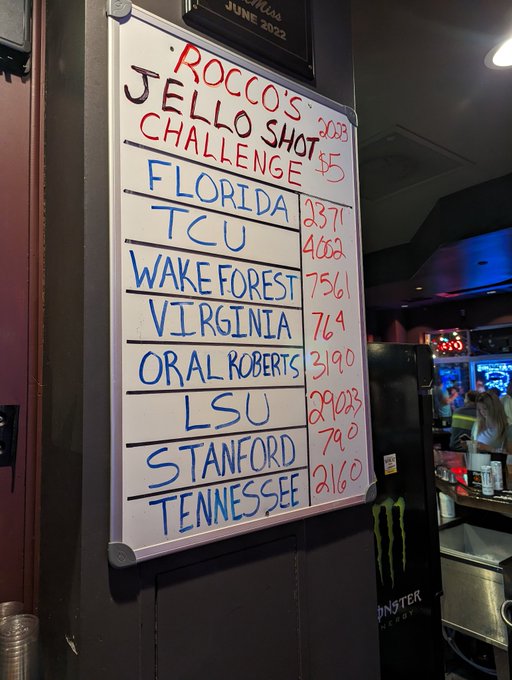 Miss
JUNE 2022
ROCCO'S
JELLO SHOT 2023
CHALLENGE $5
FLORIDA 2371
TCU 4062
WAKE FOREST 7561
VIRGINIA 764
ORAL ROBERTS 3190
LSU 29023
STANFORD 790
TENNESSEE 2160
MONSTER
ENERGY